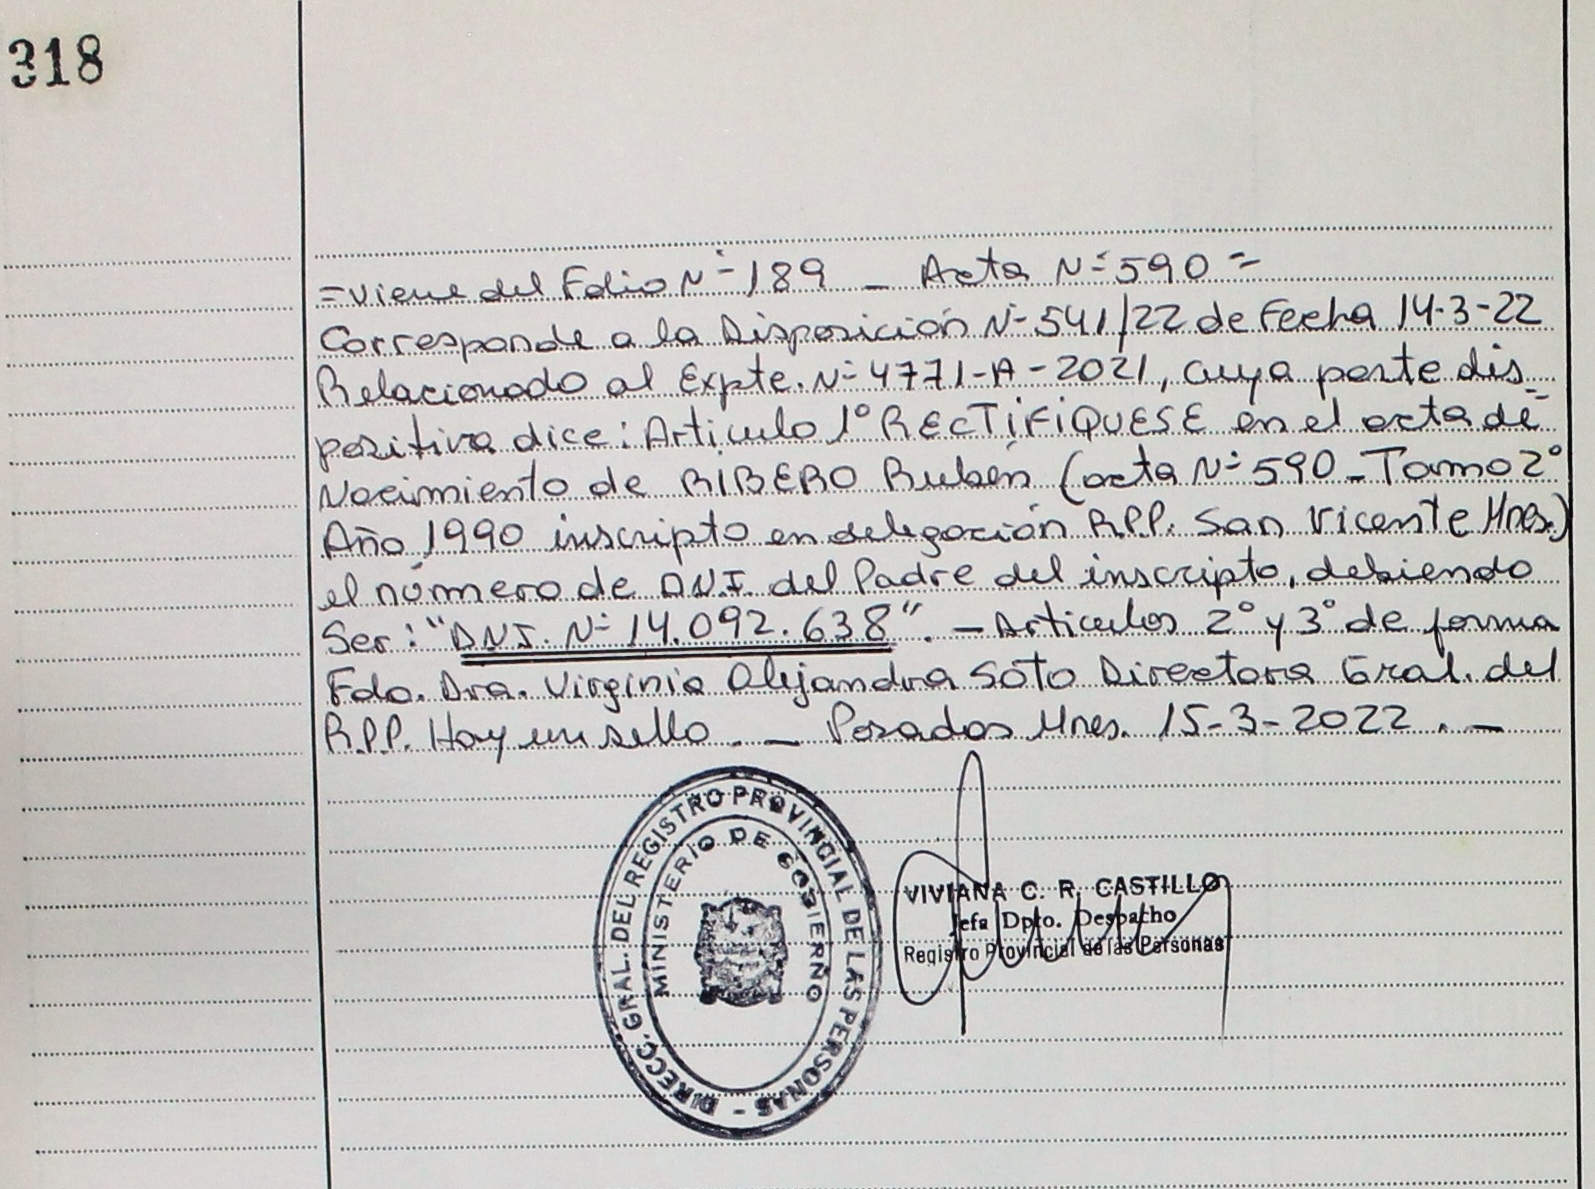 318
=Viene del Folio Nº 189 _ Acta Nº 590 =
Corresponde a la Disposición Nº 541/22 de Fecha 14-3-22
Relacionado al Expte. Nº 4771-A-2021, cuya parte dis_
positiva dice: Articulo 1º RECTIFIQUESE en el acta de
Nacimiento de RIBERO Rubén (acta Nº 590_Tomo 2º
Año 1990 inscripto en delegación R.P.P. San Vicente Mnes.)
el número de D.N.I. del Padre del inscripto, debiendo
Ser: "D.N.I. Nº 14.092.638". _ Articulos 2º y 3º de forma
Fdo. Dra. Virginia Alejandra Soto Directora Gral. del
R.P.P. Hay un sello. _ Posadas Mnes. 15-3-2022. _
DIRECC. GRAL. DEL REGISTRO PROVINCIAL DE LAS PERSONAS -
MINISTERIO DE GOBIERNO
VIVIANA C. R. CASTILLO
Jefa Dpto. Despacho
Registro Provincial de las Personas